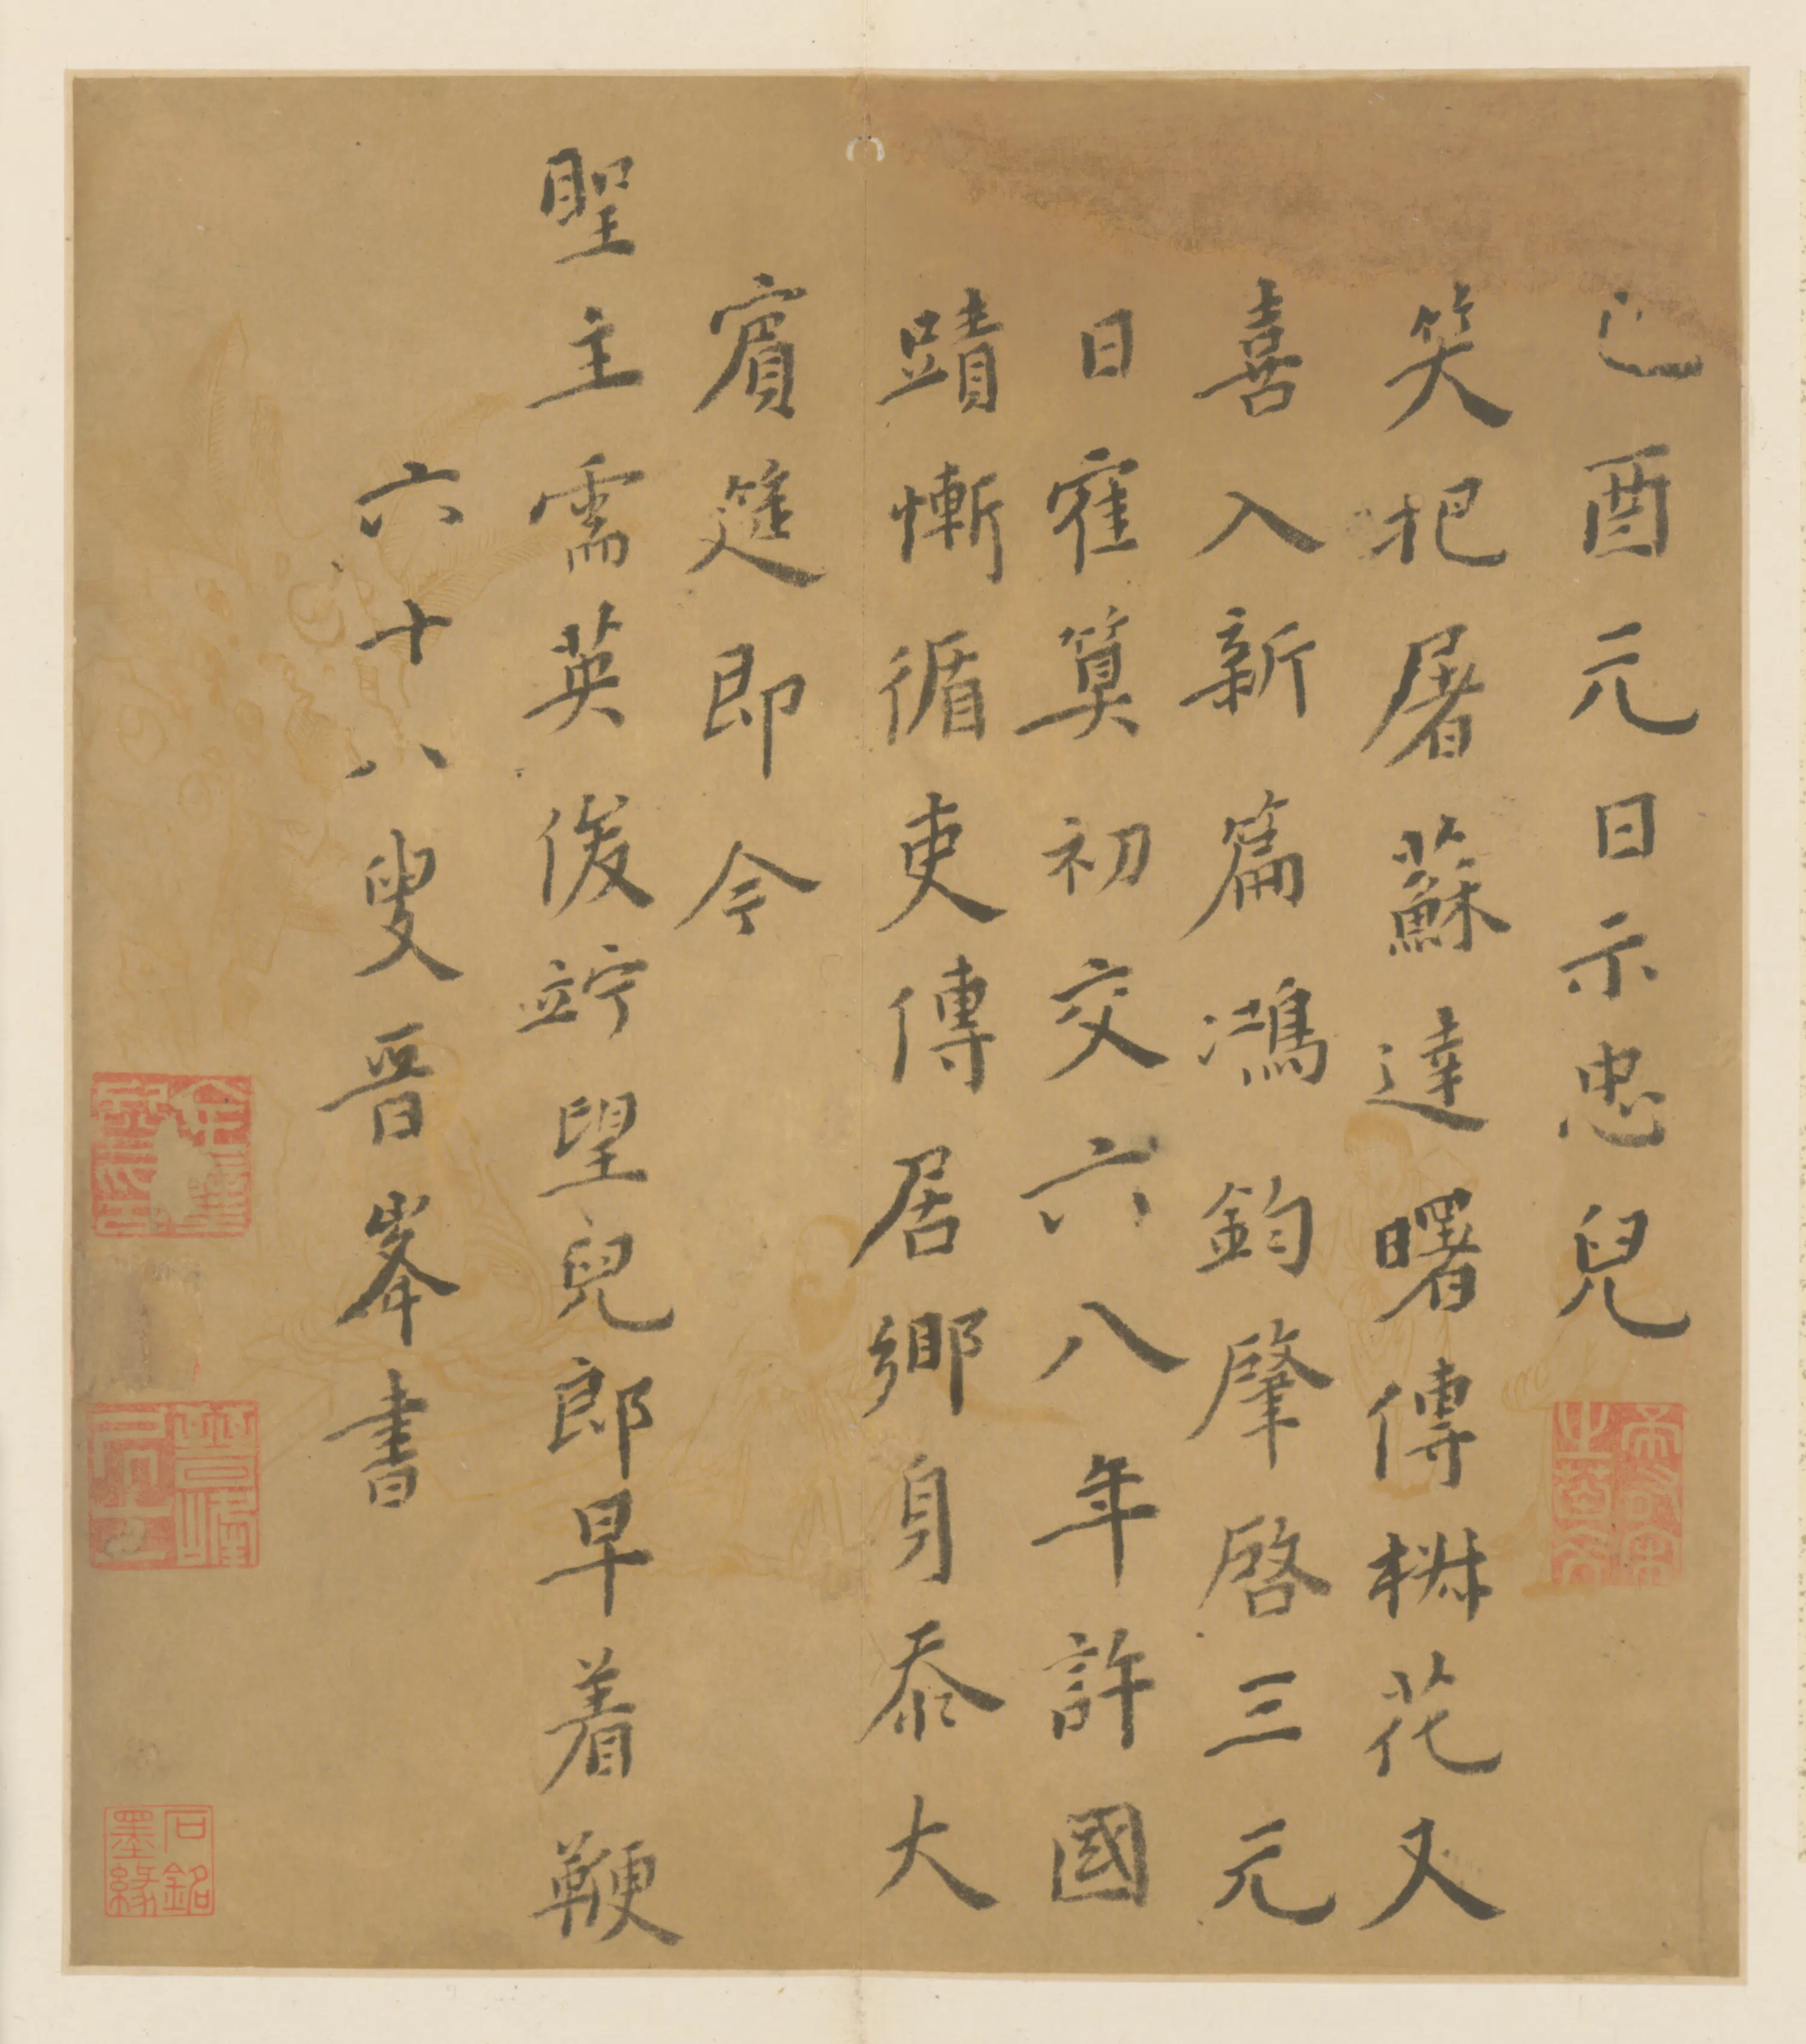 己酉元日示忠兒
笑把屠蘇達曙傳椒花又
喜入新篇鴻鈞肇啓三元
日寉筭初交六八年許國
蹟慚循吏傳居鄉身忝大
賓筵即今
聖主需英俊竚望兒郎早着鞭
六十八叟晉峯書
石銘墨緣